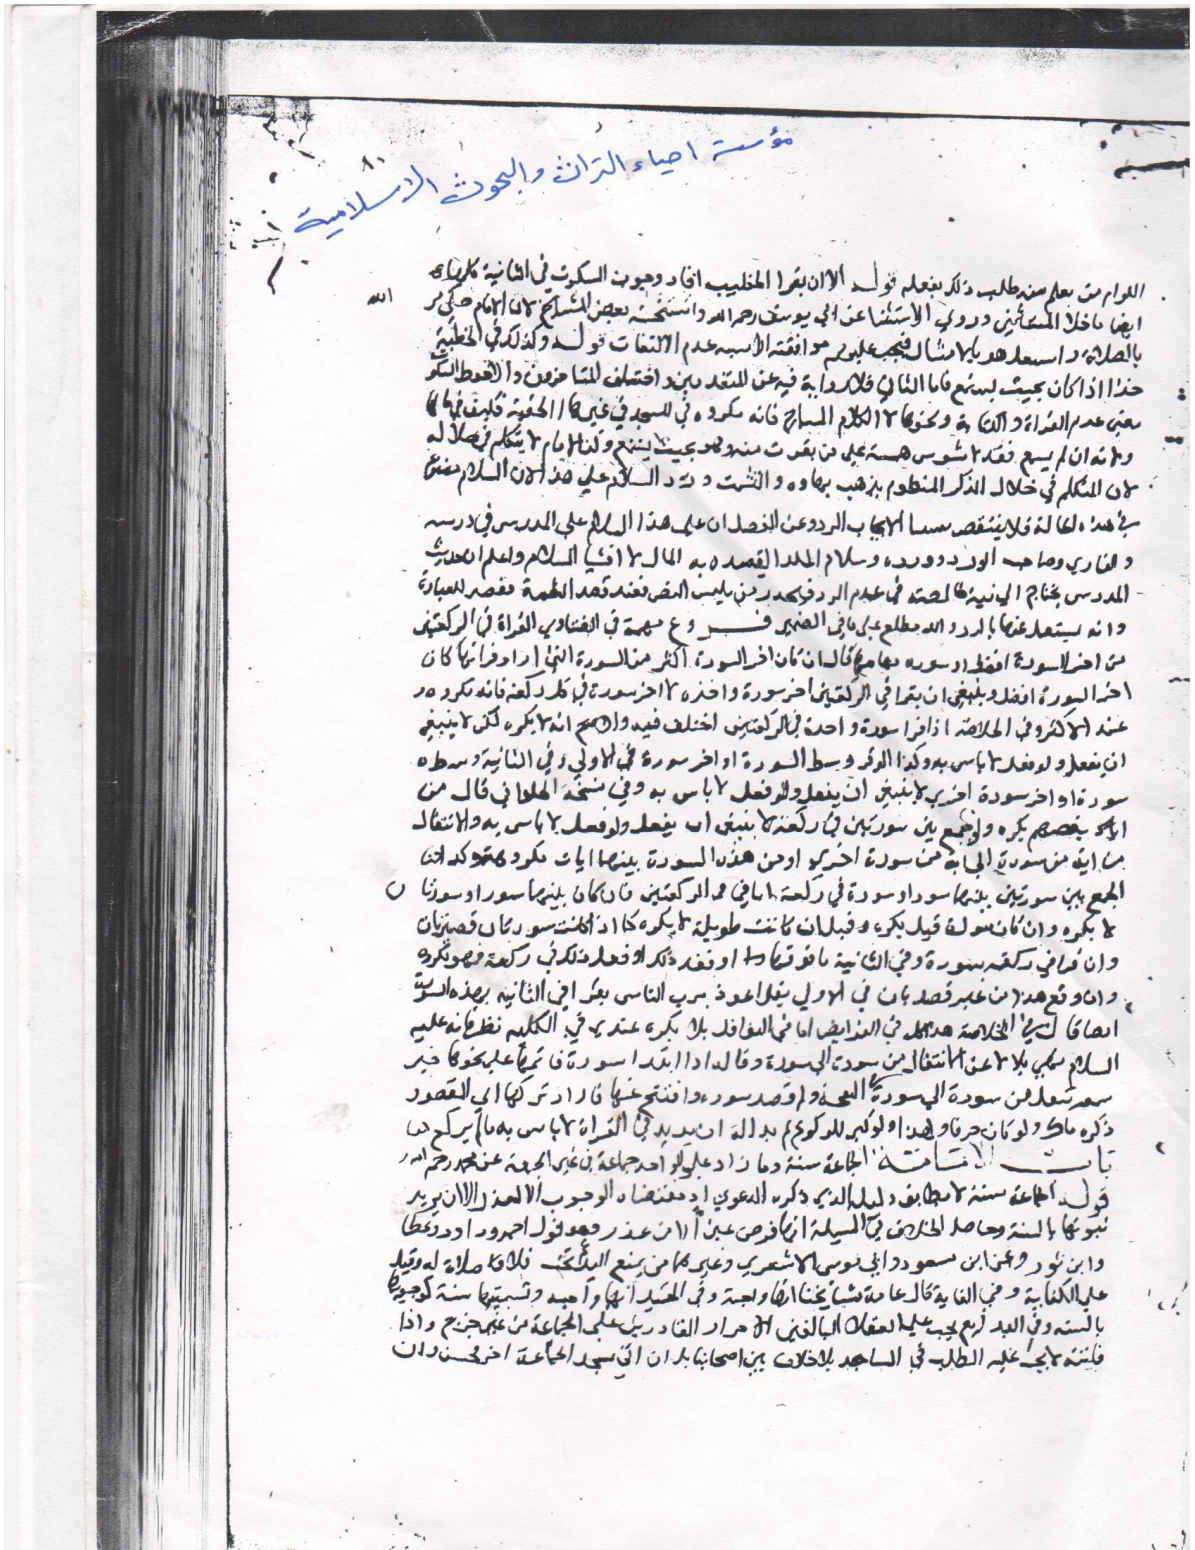 مؤسسة احياء التراث والبحوث الاسلامية
٨١
اللوام من يعلم منه طلب ذلك بفعله قوله الا ان يقرا الخطيب افاد وجوب السكوت في الثانية كلها
الله
ايضا ما خلا المستثنى وروي الاستثنا عن ابي يوسف رحمه الله واستحسنه بعض المشايخ لان الامام حكى امر
بالصلاة فيجب عليهم موافقته عدم الالتفات قوله وكذلك في الخطبة
هذا اذا كان بحيث يستمع فاما النائي فلا رواية فيه عن المتقدمين واختلف المتاخرون والاحوط السكوت
يعني عدم القراة والكتابة ونحوها لا الكلام المباح فانه مكروه في المسجد في غير هذا الحالة فكيف في
ولانه ان لم يسمع فقد لا شوش على من بقرب منه وهو بحيث يستمع ولان الامام لا يتكلم في خلاله
لان المتكلم في خلال الذكر المنظوم يذهب بهاوه والتشمت ورد السلام على هذا لان السلام ممنوع
في هذه الحالة فلا ينتقص سببا لايجاب الرد وعن الفضلي ان على هذا السلام على المدرس في درسه
والقاري وصاحب الورد وورده وسلام القصده به المال لا افشا السلام واعلم ان حديث
المدرس يحتاج الى نية في عدم الرد فليحذر من تلبيس النفس فعند قصد العظمة مقصد للعبادة
وانه يستعد عنها بالرد والله مطلع على ما في الضمير فروع مهمة في الفتاوي القراة في الركعتين
من اخر السورة افضل او سورة بتمامها قال ان كان اخر السورة اكثر من السورة التي اراد قراتها كان
اخر السورة افضل وينبغي ان يقرا في الركعتين اخر سورة واحدة لا اخر سورة في كل ركعة فانه مكروه
عند الاكثر وفي الخلاصة اذا قرا سورة واحدة في الركعتين اختلف فيه والاصح انه لا يكره لكن لا ينبغي
ان يفعل ولو فعل لا باس به وكذا لو قرا وسط السورة او اخر سورة في الاولى وفي الثانية وسط
سورة او اخر سورة اخري لا ينبغي ان يفعل ولو فعل لا باس به وفي نسخة الحلواني قال من
بعضهم يكره ولو جمع بين سورتين في ركعة لا ينبغي ان يفعل ولو فعل لا باس به والانتقال
من اية من سورة الى اية من سورة اخري او من هذه السورة بينهما ايات مكروه وكذا
الجمع بين سورتين بينهما سور او سورة في ركعة اما في الركعتين فان كان بينهما سور او سورتان
لا يكره وان كان سورة قيل يكره وقيل ان كانت طويلة لا يكره كما اذا كانت سورتان قصيرتان
وان قرا في ركعة سورة وفي الثانية ما فوقها او فعل ذلك في ركعة فهو مكروه
وان وقع هذا من غير قصد بان قرا في الاولى بقل اعوذ برب الناس يقرا في الثانية بهذه السورة
ايضا قال في الخلاصة هذا كله في الفرايض اما في النوافل فلا يكره عندي في الكلية نظر فانه عليه
السلام نهى بلالا عن الانتقال من سورة الى سورة وقال اذا ابتدات سورة فاتمها على نحوها حين
سمعه ينتقل من سورة الى سورة في التهجد ولو قصد سورة وافتتح غيرها فاراد تركها الى المقصود
ذكره ذلك ولو كان حرفا واحدا ولو كبر للركوع ثم بدا له ان يزيد في القراة لا باس به ما لم يركع
باب الامامة الجماعة سنة وما زاد على الواحد جماعة في غير الجمعة عن محمد رحمه الله
قوله الجماعة سنة لا يطابق دليله الذي ذكره الدعوي اذ مقتضاه الوجوب الا لعذر الا ان يريد
ثبوتها بالسنة وحاصل الخلاف في المسيلة انها فرض عين الا من عذر وهو قول احمد وداود وعطا
وابي ثور وعن ابن مسعود وابي موسى الاشعري وغيرهما من سمع النداء ثم لم يجب فلا صلاة له وقيل
على الكفاية وفي الغاية قال عامة مشايخنا انها واجبة وفي المفيد انها واجبة وتسميتها سنة لوجوبها
بالسنة وفي البدايع يجب على العقلا البالغين الاحرار القادرين على الجماعة من غير حرج واذا
فاتته لا يجب عليه الطلب في المساجد بلا خلاف بين اصحابنا بل ان اتى مسجد الجماعة اخر فحسن وان